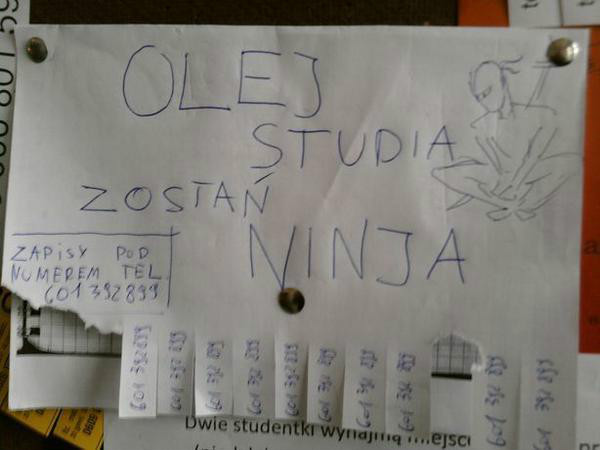 OLEJ
STUDIA
ZOSTAŃ
NINJA
ZAPISY POD
NUMEREM TEL.
601392899
601 392 899
601 392 899
601 392 899
601 392 899
601 392 899
601 392 899
601 392 899
601 392 899
601 392 899
601 392 899
Dwie studentki wynajmą miejsc